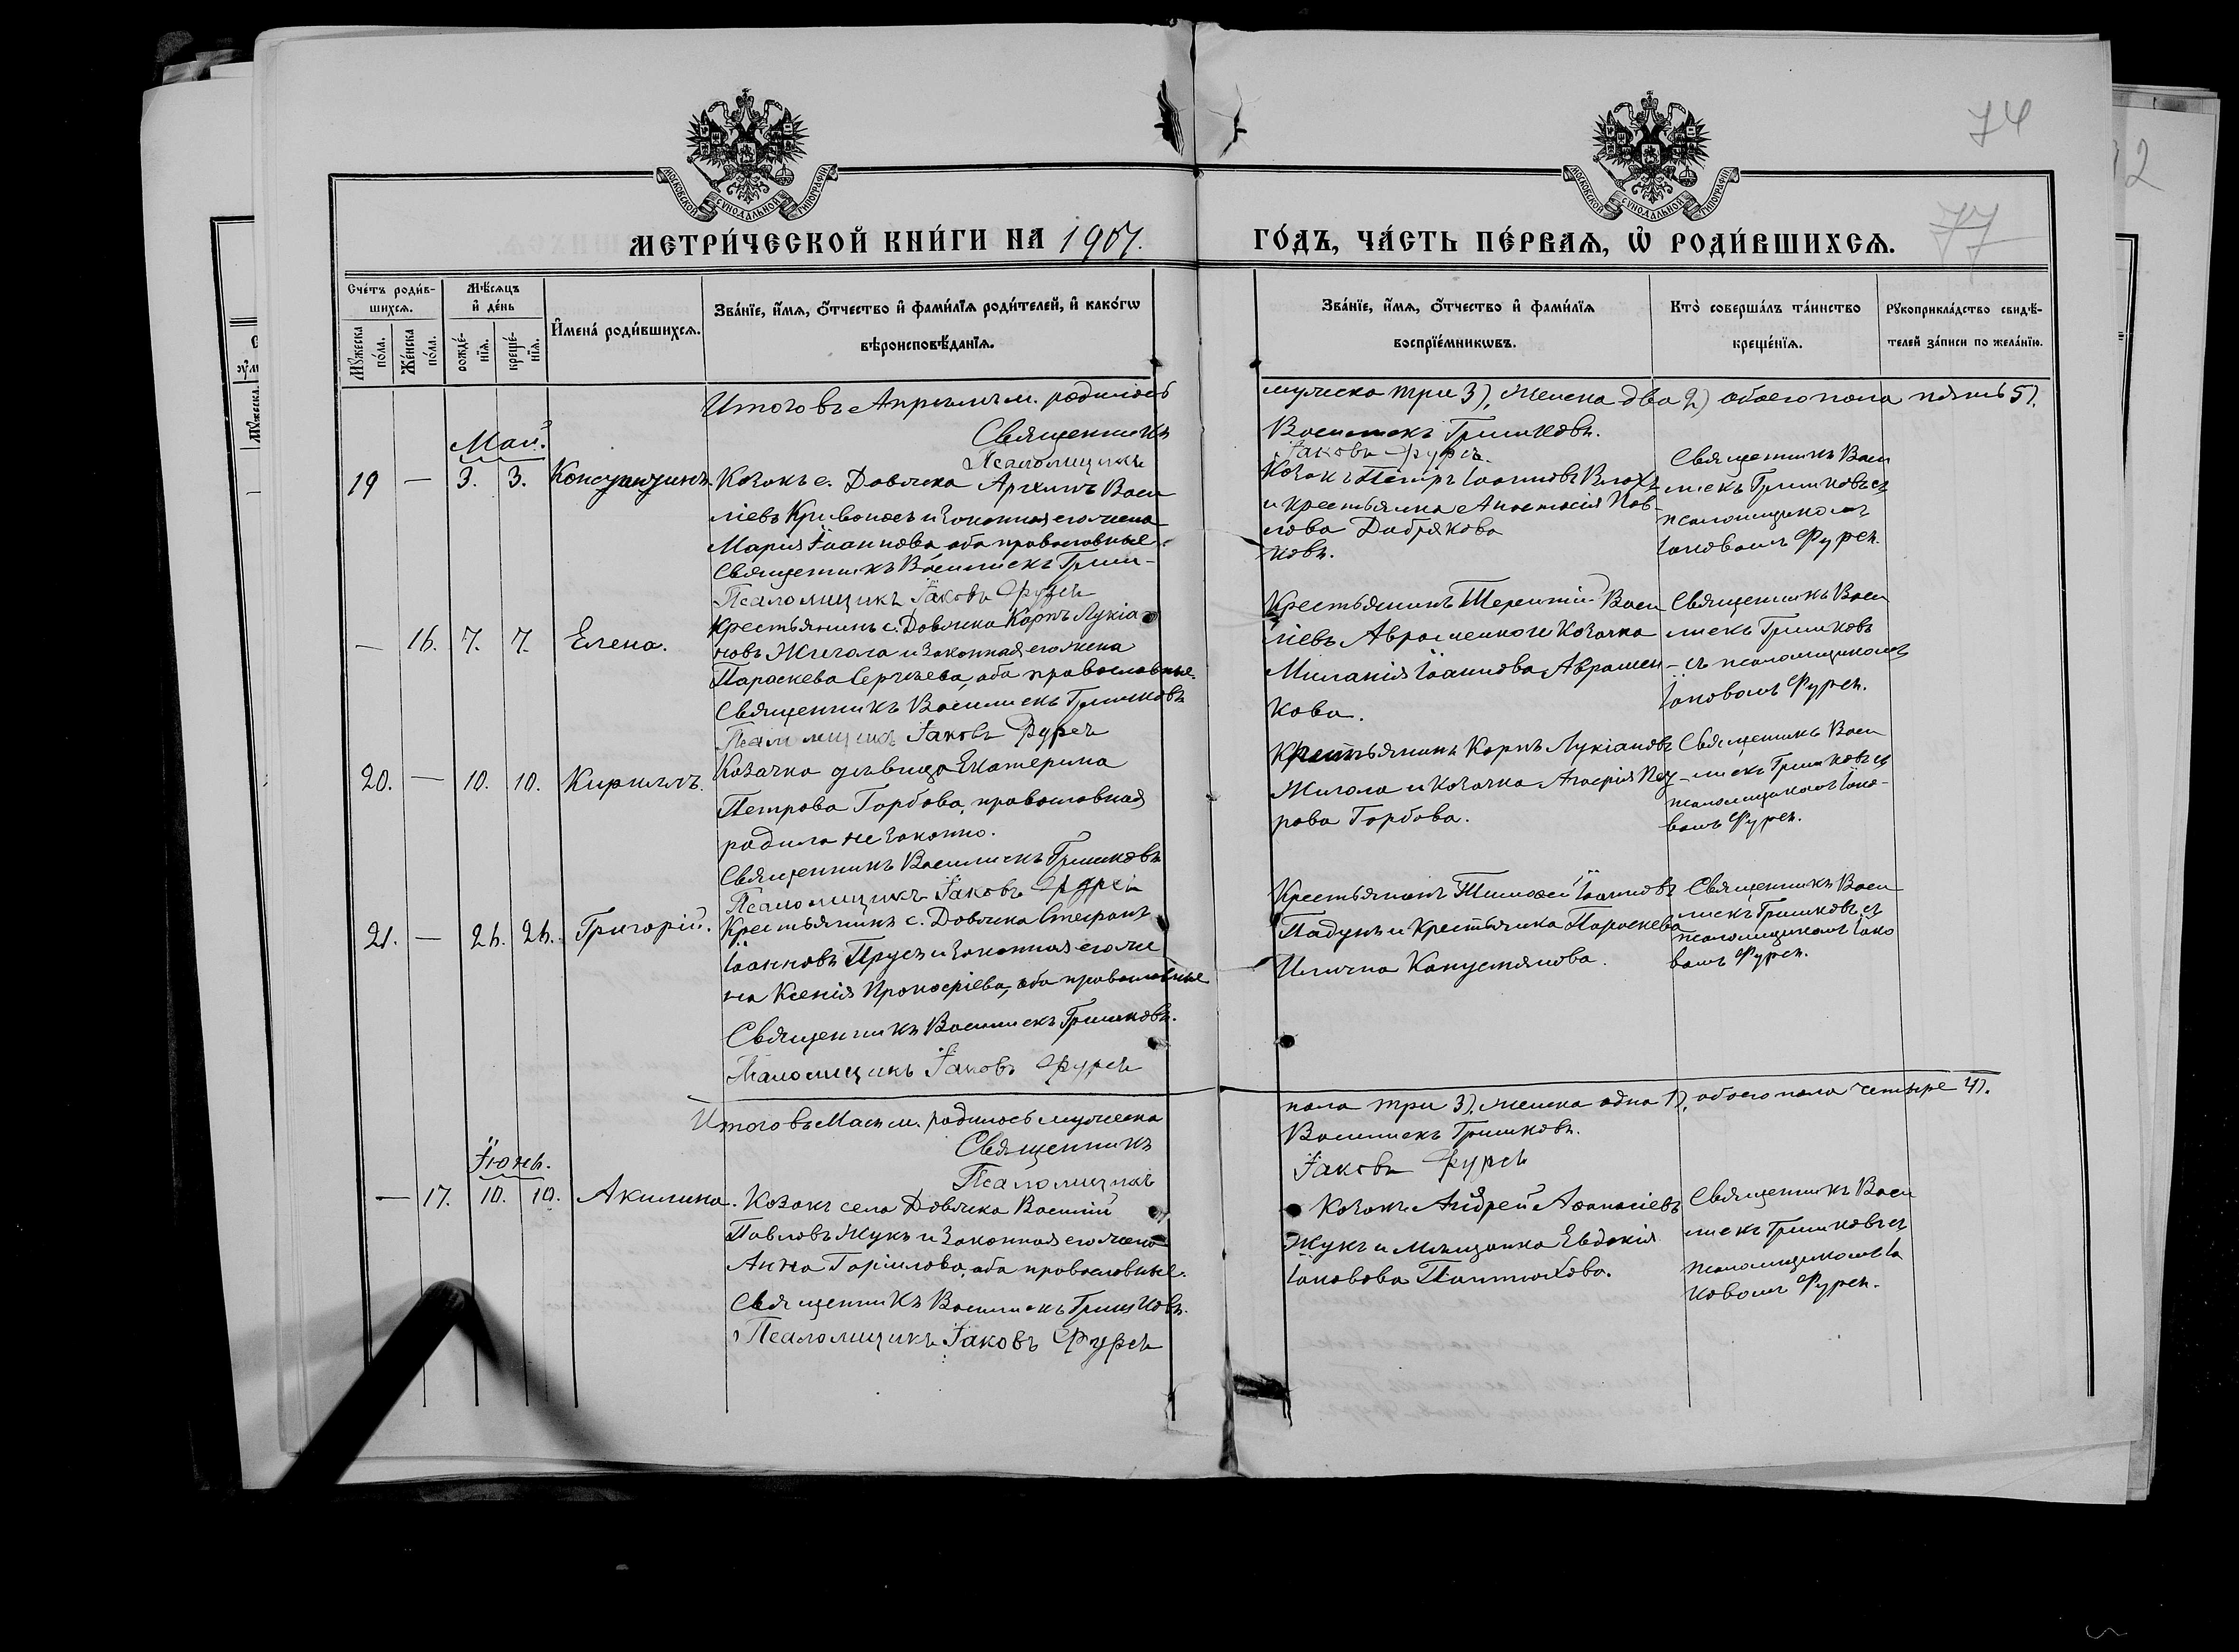 74
77
МОСКОВСКОЙ СѴНОДАЛЬНОЙ ТИПОГРАФІИ
МОСКОВСКОЙ СѴНОДАЛЬНОЙ ТИПОГРАФІИ
МЕТРИ́ЧЕСКОЙ КНИ́ГИ НА 1907.
ГО́ДЪ, ЧА́СТЬ ПЕ́РВАЯ, Ѡ҆ РОДИ́ВШИХСѦ.
Сче́тъ роди́в-
шихсѧ.
Мꙋ́жеска по́ла.
Же́нска по́ла.
Мѣ́сѧцъ и҆ де́нь
рожде́-нїѧ.
креще́-нїѧ.
И҆мена̀ роди́вшихсѧ.
Зва́нїе, и҆́мѧ, ѻ҆́тчество и҆ фами́лїѧ роди́телей, и҆ како́гѡ
вѣроисповѣ́данїѧ.
Зва́нїе, и҆́мѧ, ѻ҆́тчество и҆ фами́лїѧ
воспрїе́мникѡвъ.
Кто̀ соверша́лъ та́инство
креще́нїѧ.
Рꙋкоприкла́дство свидѣ́-
телей за́писи по жела́нїю.
Итого въ Апрѣлѣ м. родилось
мужеска три 3), женска два 2) обоего пола пять 5).
Священникъ
Василискъ Гришковъ.
Псаломщикъ
Іаковъ Фурсъ.
Май.
19 — 3. 3. Константинъ.
Козакъ с. Довжика Архипъ Васи
ліевъ Кривоносъ и законная его жена
Марія Іоаннова, оба православные.
Священникъ Василискъ Гриш-
ковъ.
Псаломщикъ Іаковъ Фурсъ
Козакъ Петръ Іоанновъ
и крестьянка Анастасія Пав-
лова Добрякова
Священникъ Васи
лискъ Гришковъ съ
псаломщикомъ
Іаковомъ Фурсъ.
— 16. 7. 7. Елена.
Крестьянинъ с. Довжика Карпъ Лукіа
новъ Жигала и законная его жена
Параскева Сергіева, оба православные.
Священникъ Василискъ Гришковъ
Псаломщикъ Іаковъ Фурсъ
Крестьянинъ Терентій Васи
ліевъ Авраменко и козачка
Миланія Іоаннова Аврамен-
кова.
Священникъ Васи
лискъ Гришковъ
съ псаломщикомъ
Іаковомъ Фурсъ.
20. — 10. 10. Кириллъ.
Козачка дѣвица Екатерина
Петрова Горбова, православная
родила не законно.
Священникъ Василискъ Гришковъ
Псаломщикъ Іаковъ Фурсъ
Крестьянинъ Карпъ Лукіановъ
Жигала и козачка Агафія Пет-
рова Горбова.
Священникъ Васи
лискъ Гришковъ съ
псаломщикомъ Іако-
вомъ Фурсъ.
21. — 26. 26. Григорій.
Крестьянинъ с. Довжика Стефанъ
Іоанновъ Прусъ и законная его же
на Ксенія Прокофіева, оба православные
Священникъ Василискъ Гришковъ.
Псаломщикъ Іаковъ Фурсъ
Крестьянинъ Тимофей Іоанновъ
Падунъ и крестьянка Параскева
Ильина Капустянова.
Священникъ Васи
лискъ Гришковъ съ
псаломщикомъ Іако
вомъ Фурсъ.
Итого въ Маѣ м. родилось мужеска
пола три 3), женска одна 1), обоего пола четыре 4).
Священникъ
Василискъ Гришковъ.
Псаломщикъ
Іаковъ Фурсъ
Іюнь.
— 17. 10. 10. Акилина.
Козакъ села Довжика Василій
Павловъ Жукъ и законная его жена
Анна Гаріилова, оба православные.
Священникъ Василискъ Гришковъ.
Псаломщикъ Іаковъ Фурсъ
Козакъ Андрей Афанасіевъ
Жукъ и мѣщанка Евдокія
Іаковова Пантюхова.
Священникъ Васи
лискъ Гришковъ съ
псаломщикомъ Іа
ковомъ Фурсъ.